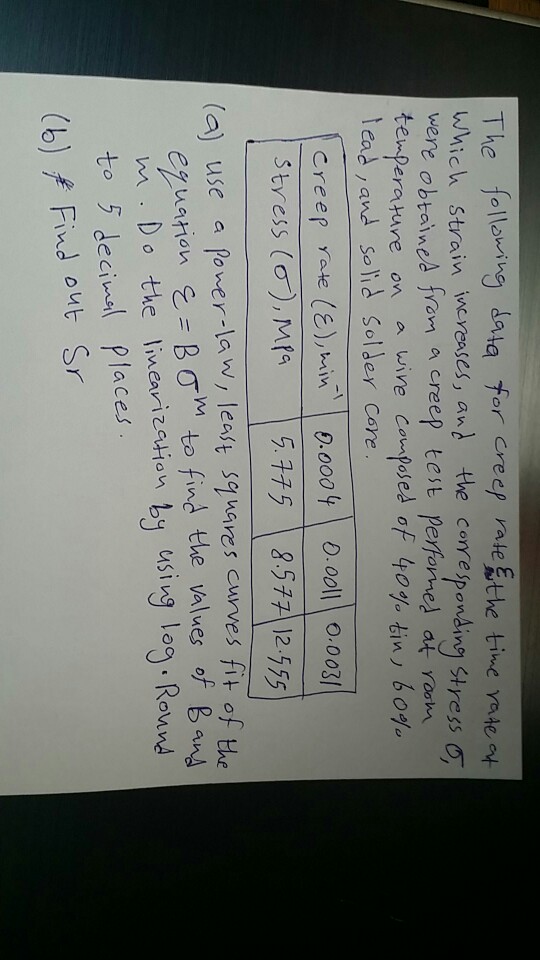 The following data for creep rate ε̇ the time rate at
which strain increases, and the corresponding stress σ,
were obtained from a creep test performed at room
temperature on a wire composed of 40% tin, 60%
lead, and solid solder core.
creep rate (ε̇), min⁻¹ 0.0004 0.0011 0.0031
stress (σ), MPa 5.775 8.577 12.555
(a) use a power-law, least squares curves fit of the
equation ε̇ = Bσᵐ to find the values of B and
m. Do the linearization by using log. Round
to 5 decimal places.
(b) Find out Sr